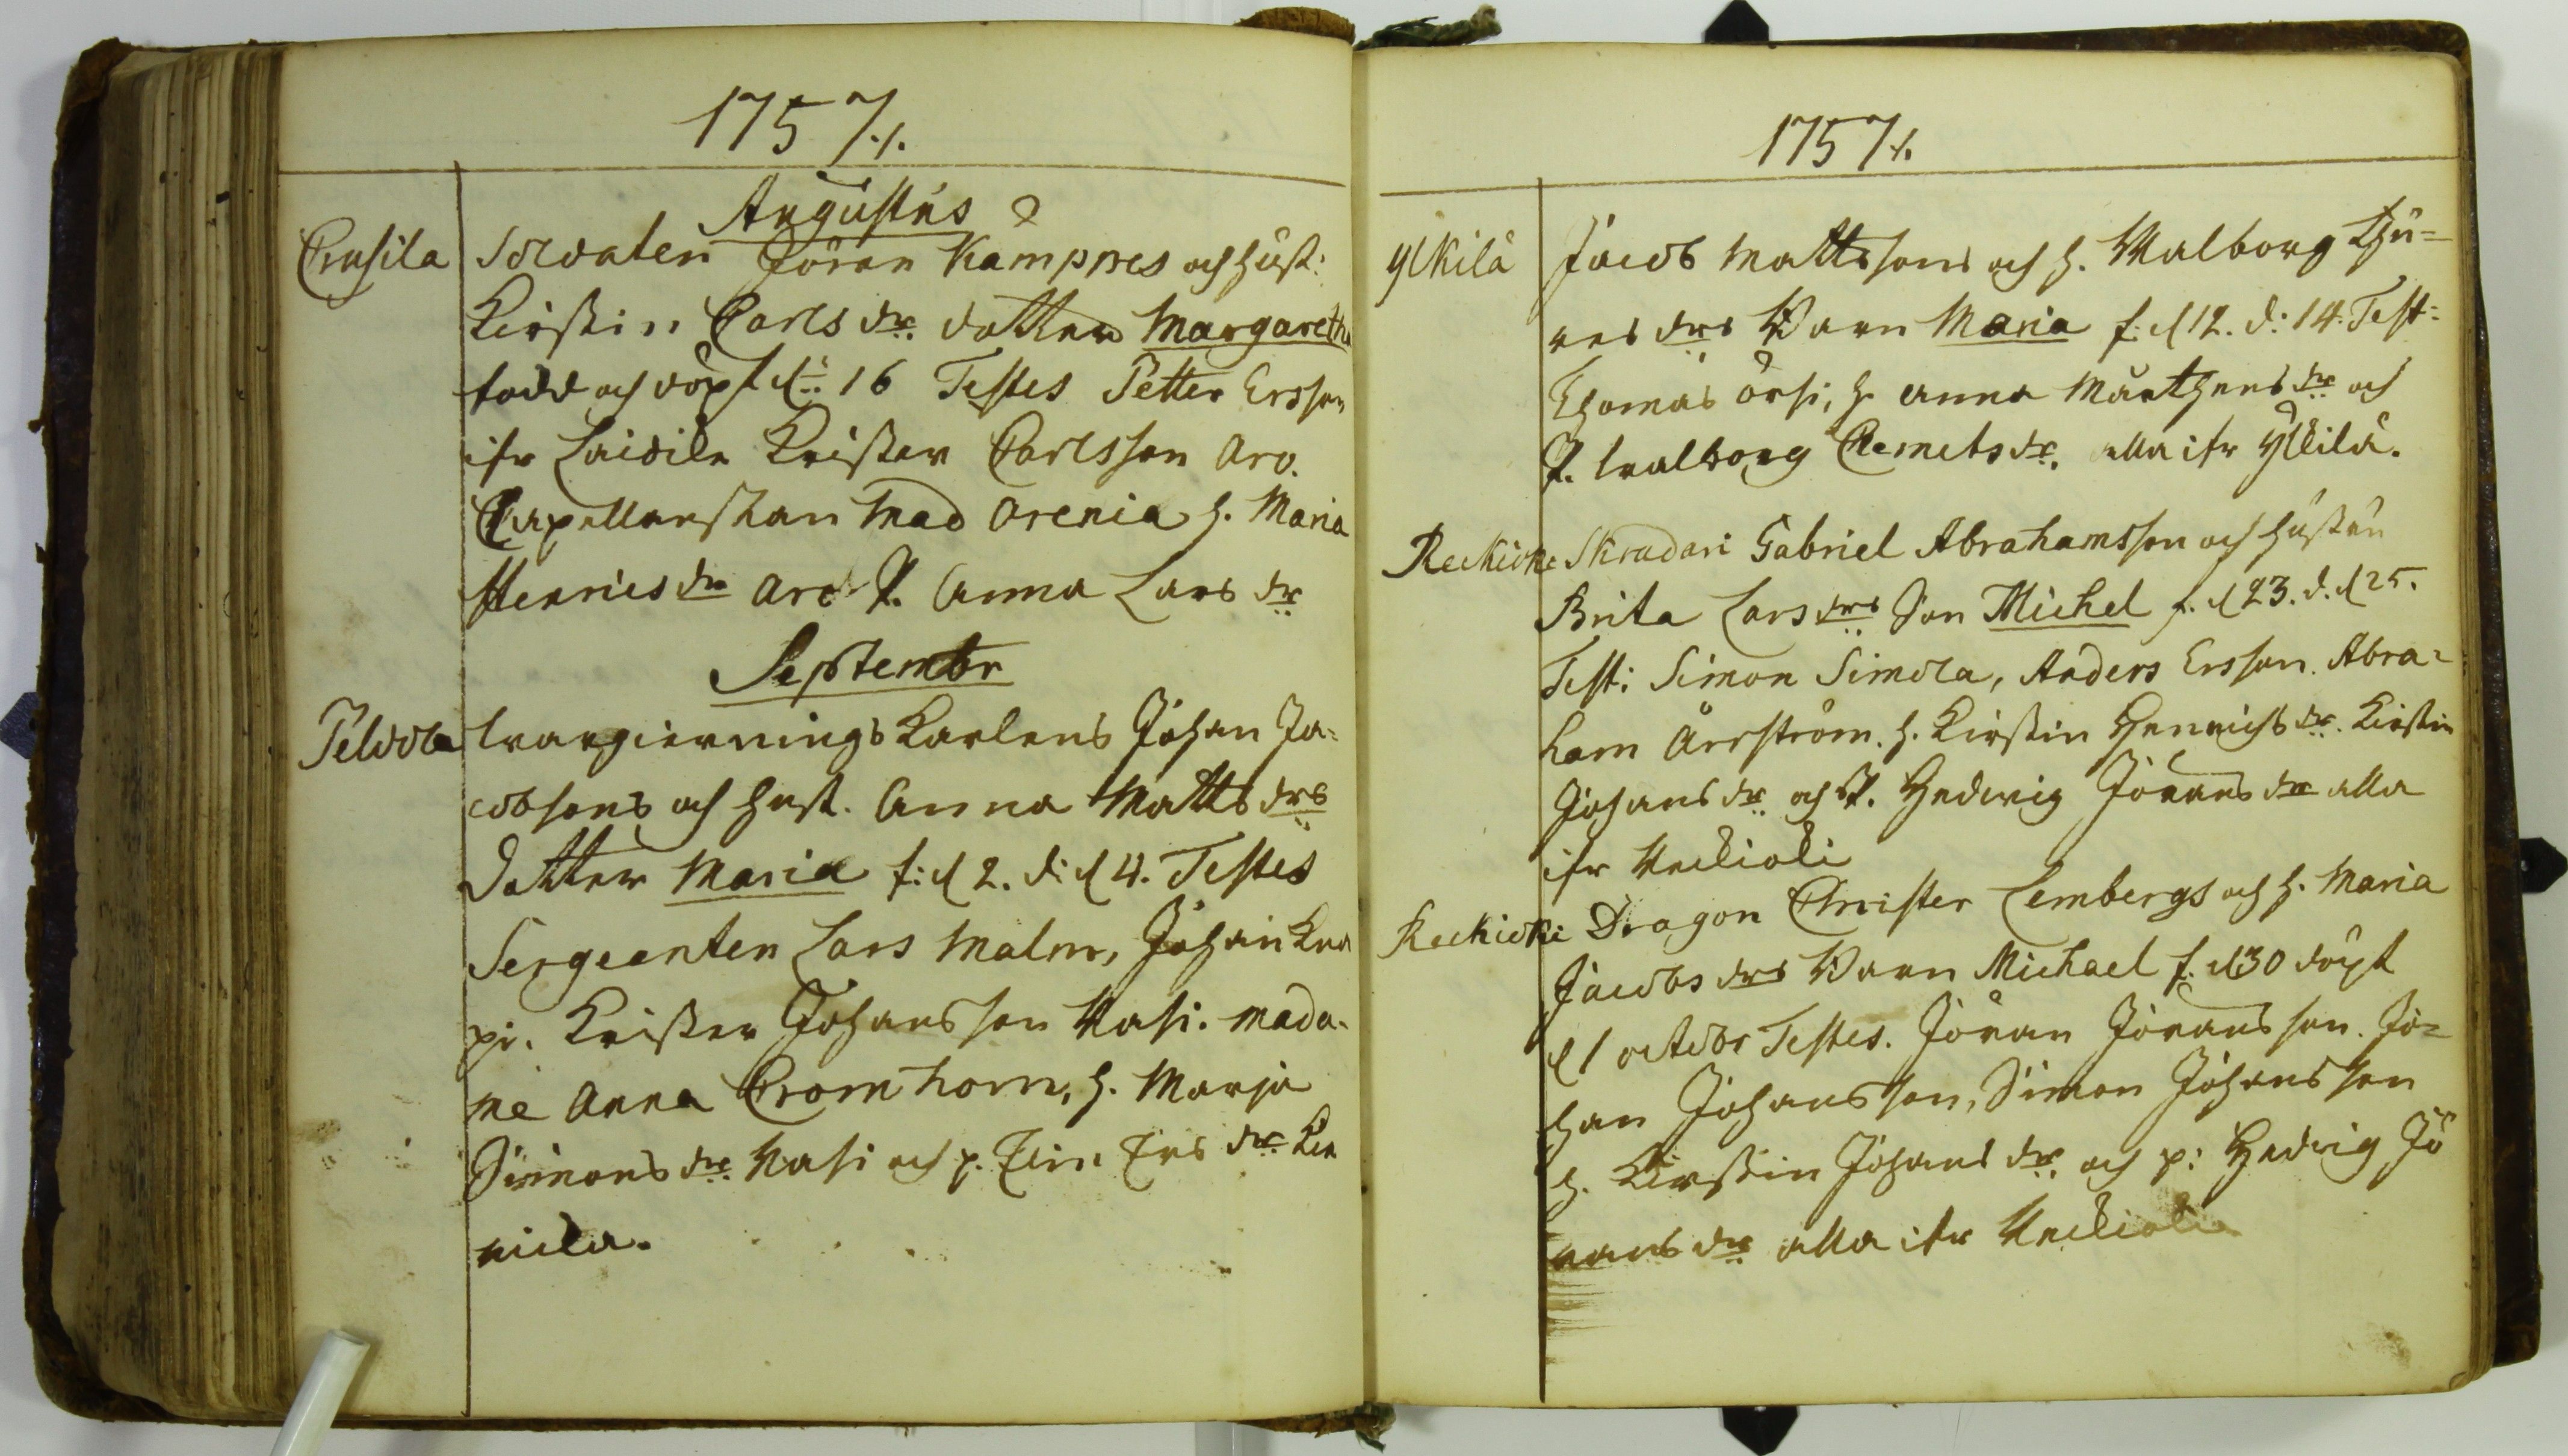 1757./.
Augustus
Crusila Soldaten Jöran Kämppes och hust:
Kirstin Carls dr. dotter Margaretha
född och döpt d: 16 Testes Petter Ersson
ifr Laidila Krister Carlsson Aro.
Capellanskan Mad Orenia h. Maria
Henrics dr Aro P. Anna Lars dr
Septembr
Peldola wargierningskarlens Johan Ja-
cobsons och hust. Anna Matts drs
Dotter Maria f: d 2. d: d 4. Testes
Sergeanten Lars Malm, Johan Kna
pi. Krister Johansson Vasi. mada-
me Anna Cromhorn, h. Marja
Simons dr. Vasi och p. Elin Ers dr
micla.
1757./.
ylkilä Jacob Mattssons och h. Walborg Thu-
res drs Barn Maria f: d 12. d: 14. Test:
Thomas örsi, h. Anna Mårthens dr och
P. Walborg Clemets dr. alla ifr Ylkilä.
Reckioki Skradari Gabriel Abrahamsson och hustrun
Brita Lars drs Son Michel f. d 23. d. d 25.
Test: Simon Simola, Anders Ersson. Abra-
ham Årström. h. Kirstin Henrichs dr. Kirstin
Johans dr och P. Hedwig Jörans dr alla
ifr Reckioki
Reckioki Dragon Christer Lembergs och h. Maria
Jacobs drs Barn Michael f. d 30 döpt
d 1 octobr Testes. Jöran Jöransson. Jo-
han Johansson, Simon Johansson
h. Kirstin Johans dr. och p: Hedvig Jö
rans dr alla ifr Reckioki